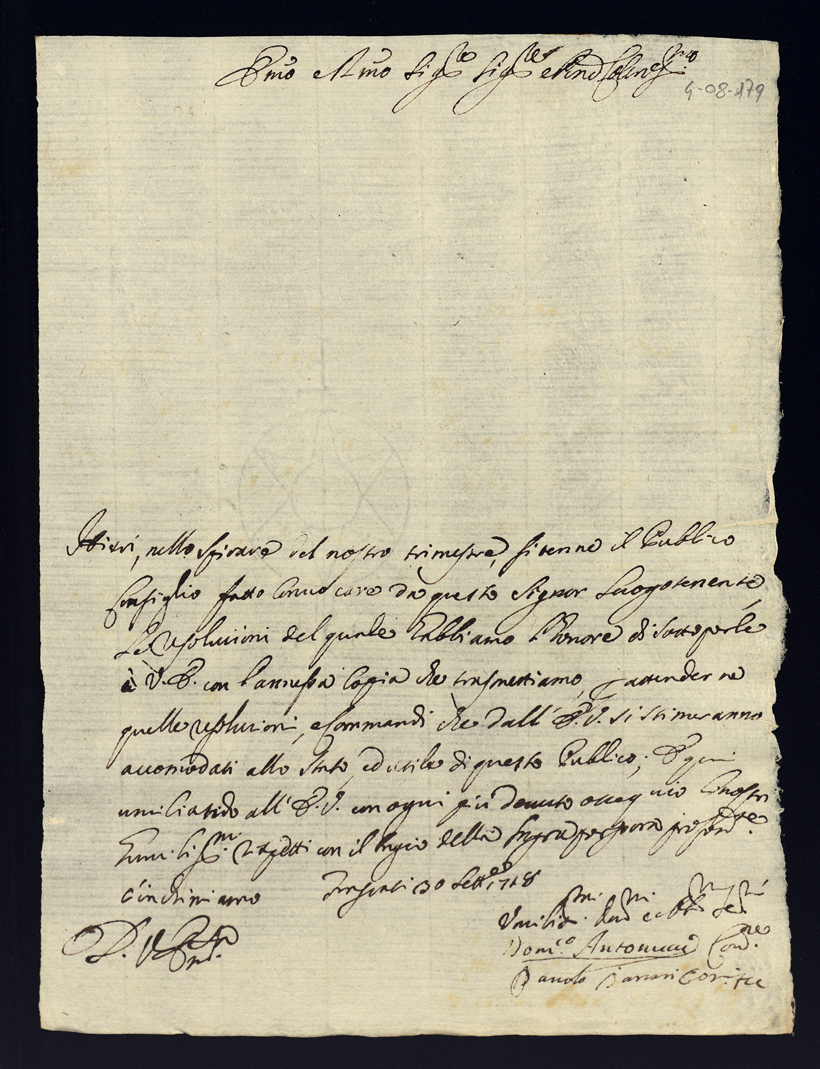 Emo e Rmo Sigre Sigre e Pnd Colmo
4-08-179
Hieri, nello spirare del nostro trimestre, si tenne il Publico
Consiglio fatto convocare da questo Signor Luogotenente,
Le resolutioni del quale habbiamo l'honore di sottoporle
à V. E. con l'annessa Copia che trasmettiamo, attenderne
quelle resolutioni, e Commandi che dall' E. V. si stimeranno
accomodati allo Stato, ed utile di questo Publico; E qui
umiliando all' E. V. con ogni più devuto ossequio li nostri
humilissmi rispetti con il bagio della Sagra porpora
c'inchiniamo 30 Settre 1718
D. V. E.
Umilissmi
Domco Antonucci